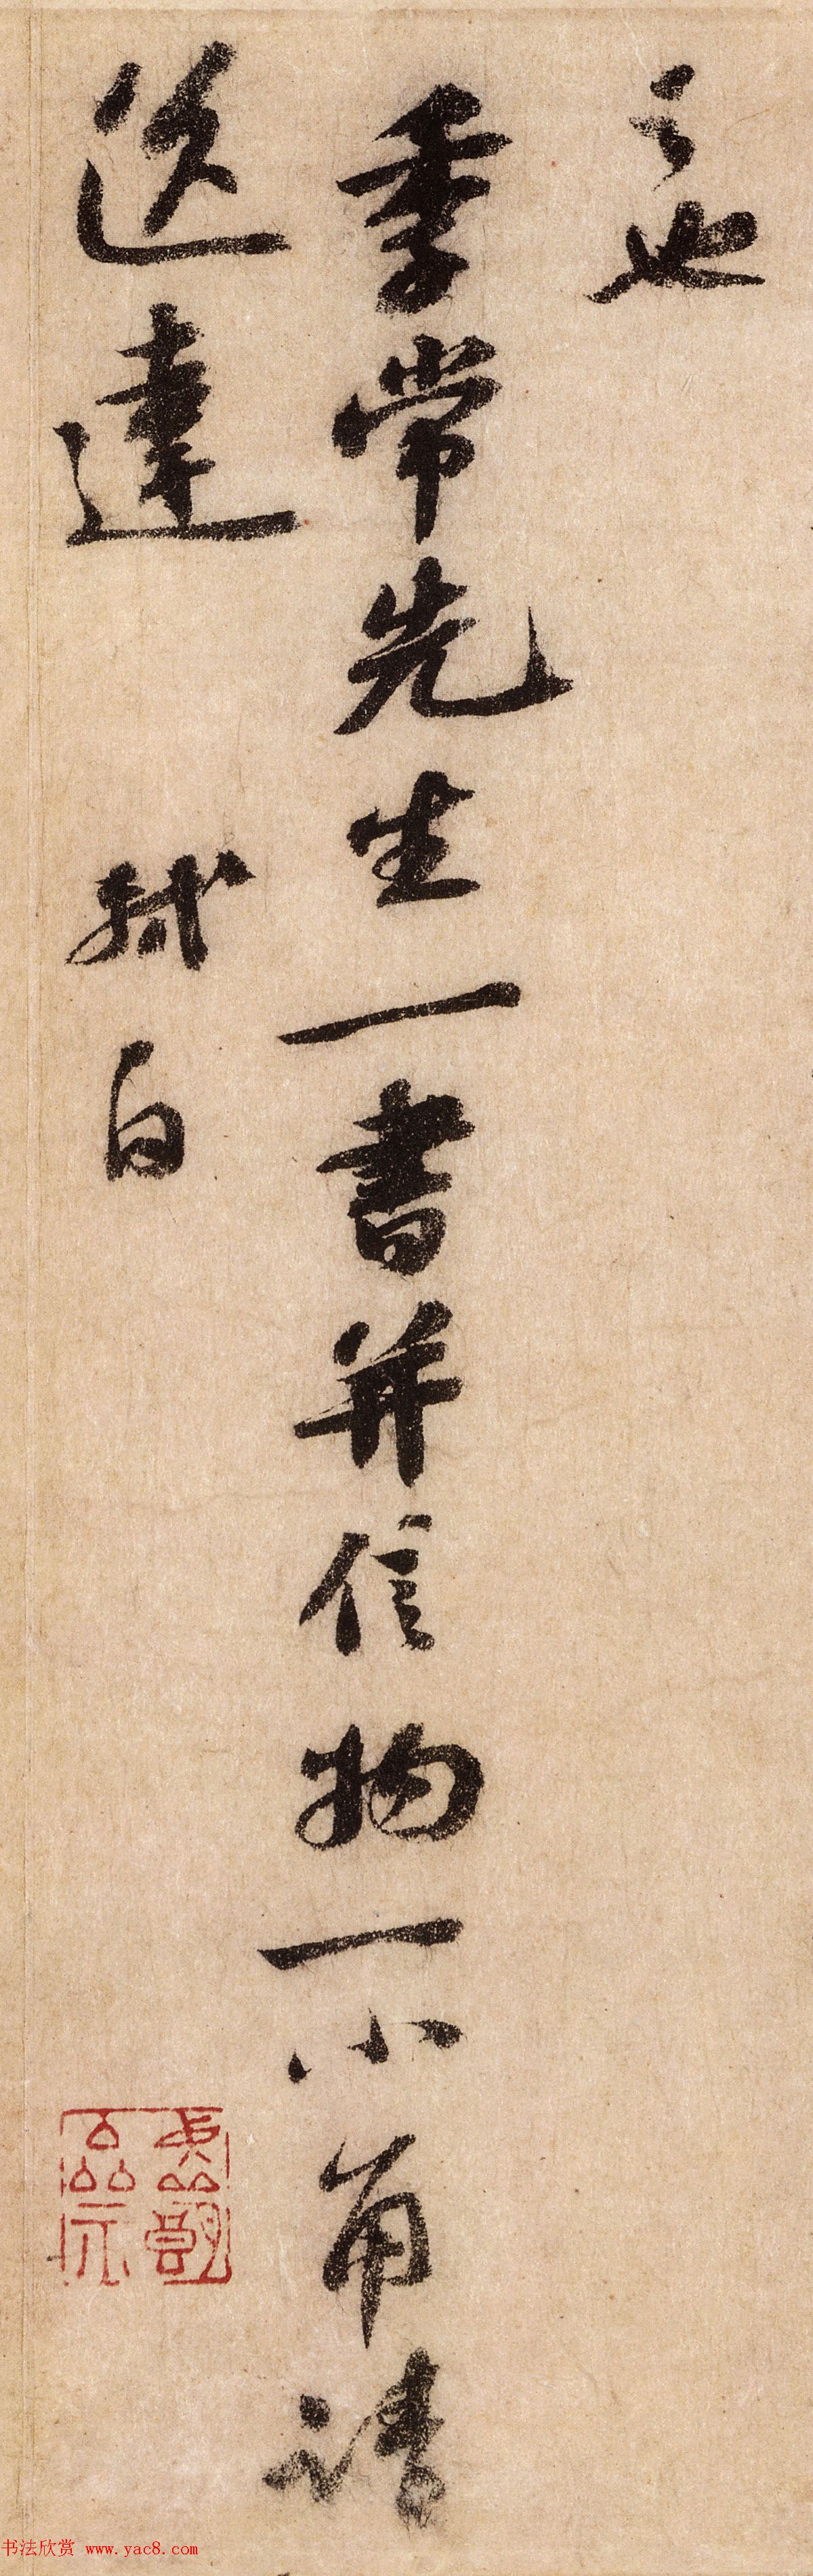 之也
季常先生一書并信物一小角請
送達　軾白
书法欣赏 www.yac8.com